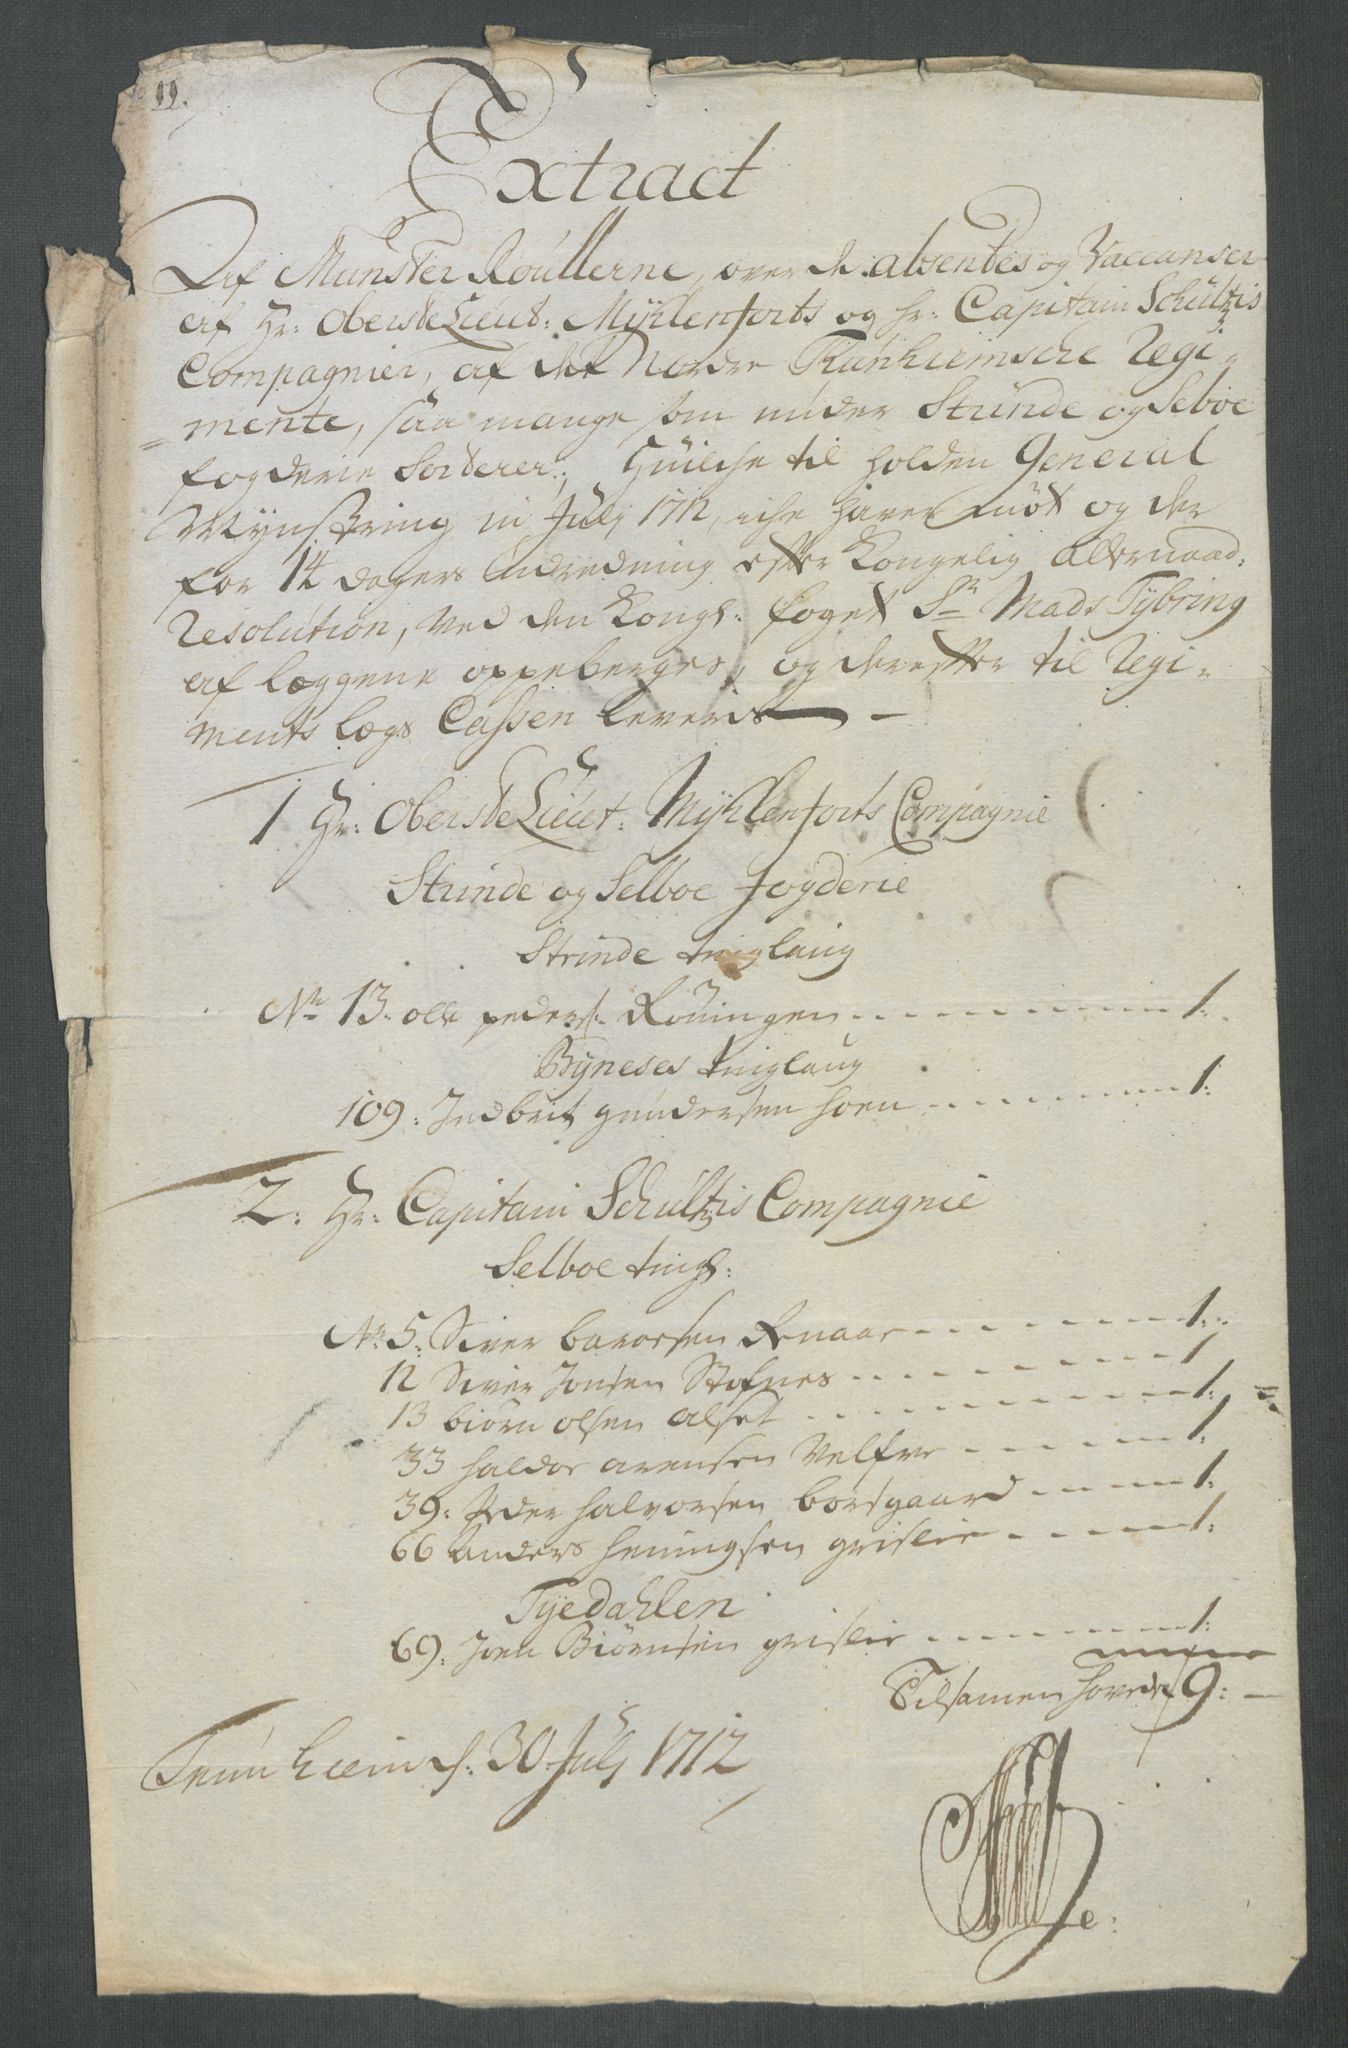 99.
Extract
Af Munster Roullerne, over de absentes og Vaccanser
af Hr: Oberste Lieut: Mÿhlenforts og Hr: Capitain Schültzis
Compagnier, af det Nordre Trunhiemsche Regi-
mente, saa mange som under Strinde og Selboe
fogderie Sorterer; Huilche til holden General
Mynstring in July 1712, iche hafver mødt og der
for 14 dagers udredning efter Kongelig allernaad:
Resolution, ved den Kongl: foget Sr Mads Tÿbring
af læggene oppeberges, og derefter til Regi-
ments lægs Cassen leveris
1 Hr: Oberste Lieut: Mÿhlenforts Compagnie
Strinde og Selboe fogderie
Strinde tinglaug
No 13. olle peders: Rønningen 1:
Bÿneses tinglaug
109: Indbrit gundersen hoen 1:
2. Hr: Capitain Schültzis Compagnie
Selboe tingl:
No 5: Siver baroesen Renaae 1:
12 Siver Jonsen Stofnes 1
13 biørn olsen alset 1:
33 haldor arensen Velfve 1:
39: Peder halvorsen borsgaard 1:
66 Anders heningsen grislie 1:
Tÿedahlen
69: Joen Biørnsen grislie 1:
Tilsamen hoveder 9:
Trunhiem d: 30 July 1712